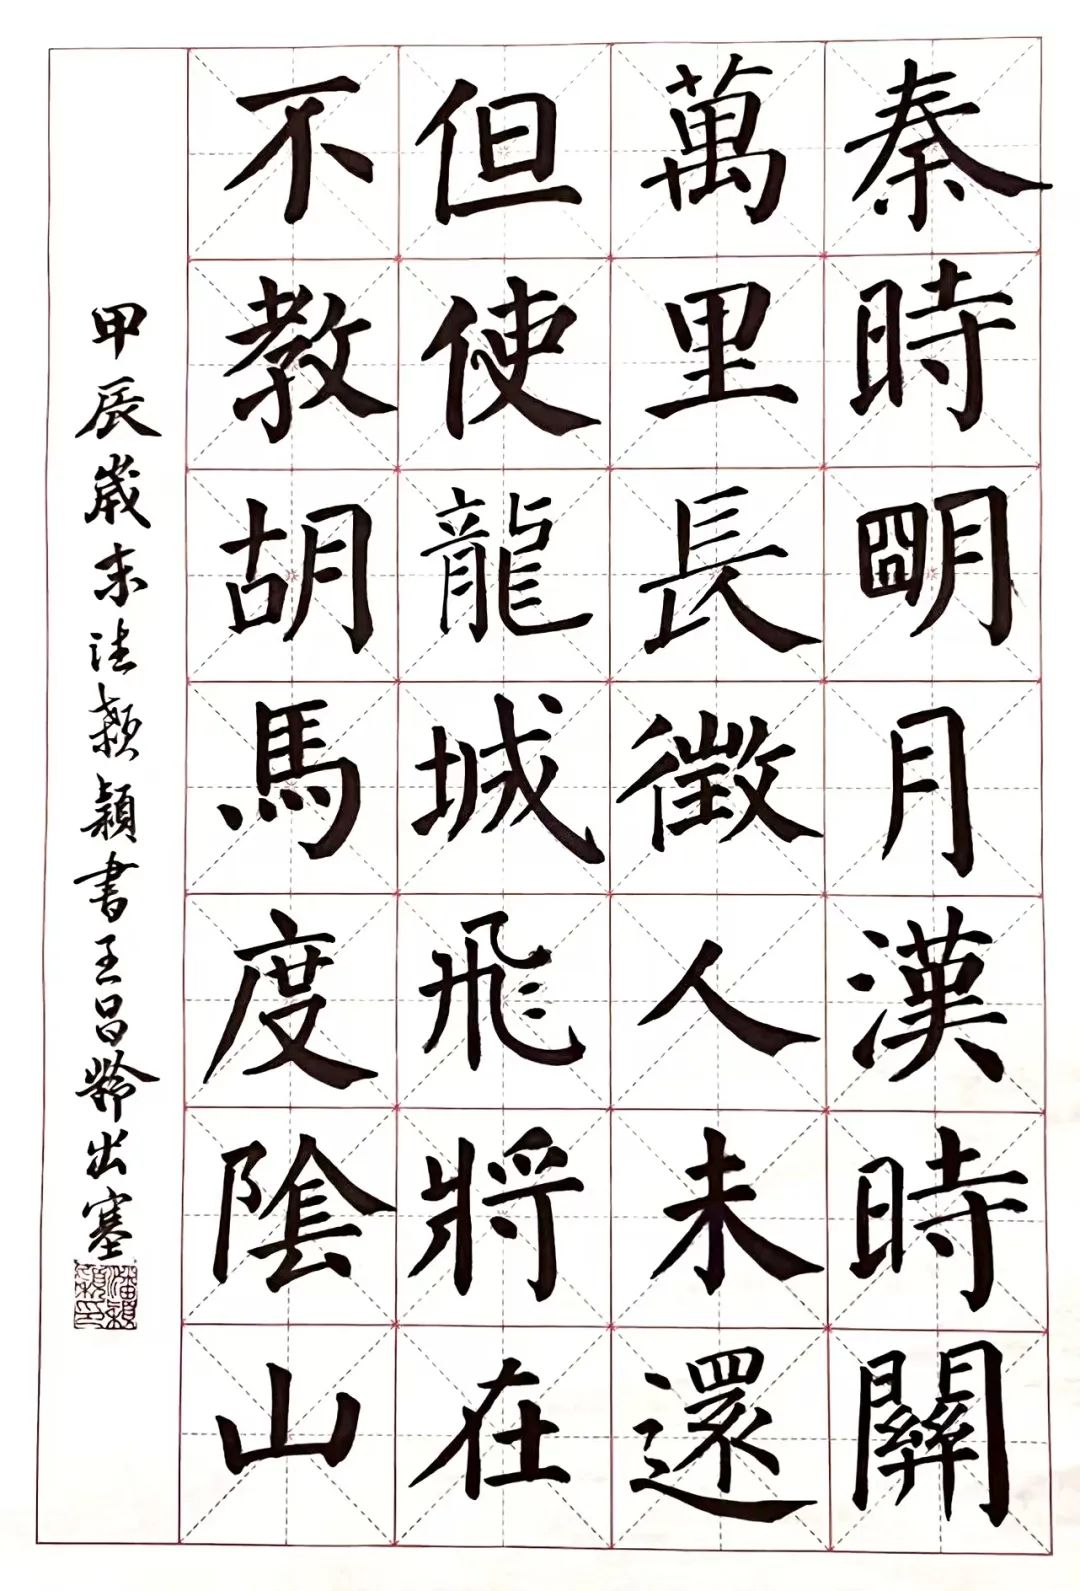 秦時朙月漢時關
萬里長徵人未還
但使龍城飛將在
不教胡馬度陰山
甲辰歲末穎書王昌齡出塞